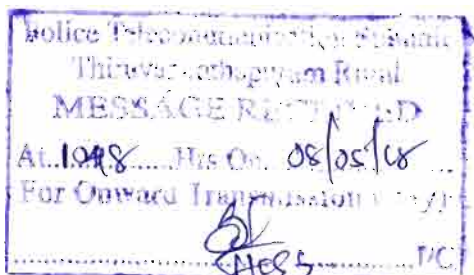 Police Telecommunication
Thiruvananthapuram Rural
MESSAGE RECEIVED
At 1048 Hrs On 08/05/18
For Onward Transmission
P/C